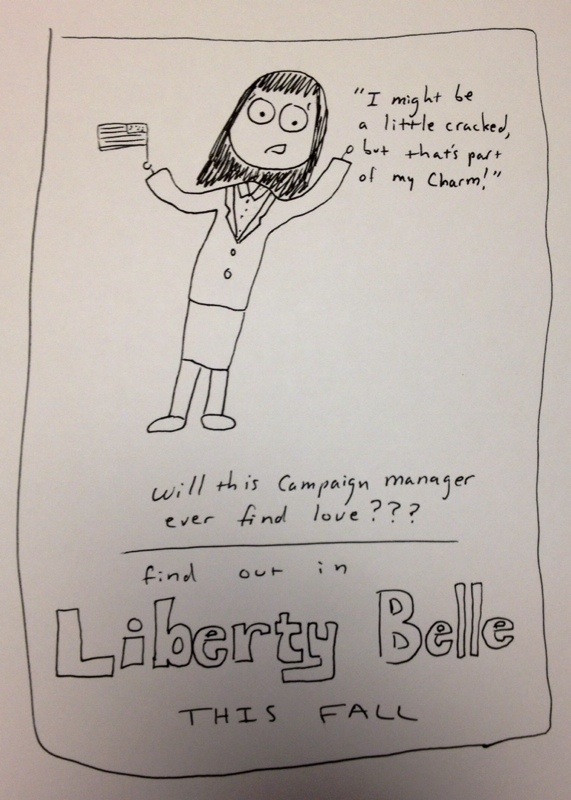 "I might be
a little cracked,
but that's part
of my Charm!"
Will this Campaign manager
ever find love???
find out in
Liberty Belle
THIS FALL